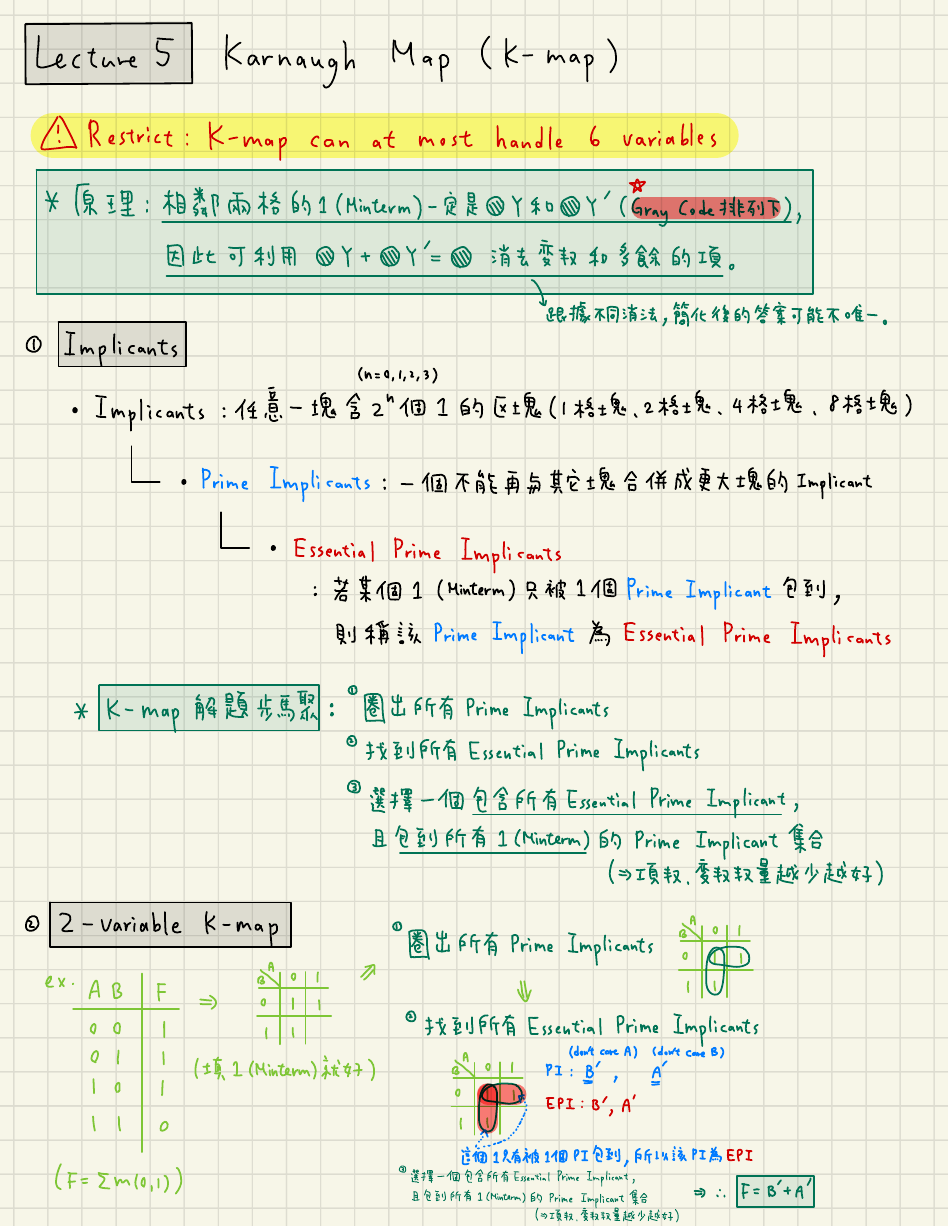 Lecture 5 Karnaugh Map (K-map)
⚠ Restrict: K-map can at most handle 6 variables
* 原理: 相鄰兩格的1(Minterm)一定是◍Y和◍Y' (Gray Code排列下),
因此可利用 ◍Y+◍Y'=◍ 消去变数和多餘的項。
跟據不同消法,簡化後的答案可能不唯一。
① Implicants
(n=0,1,2,3)
• Implicants : 任意一塊含2ⁿ個1的区塊(1格塊、2格塊、4格塊、8格塊)
• Prime Implicants : 一個不能再与其它塊合併成更大塊的 Implicant
• Essential Prime Implicants
: 若某個1 (Minterm) 只被1個 Prime Implicant 包到,
則稱該 Prime Implicant 為 Essential Prime Implicants
* K-map 解題步驟 : ① 圈出所有 Prime Implicants
② 找到所有 Essential Prime Implicants
③ 選擇一個包含所有 Essential Prime Implicant,
且包到所有1(Minterm)的 Prime Implicant 集合
(⇒項数、变数数量越少越好)
② 2-variable K-map
ex.
A B F
0 0 1
0 1 1
1 0 1
1 1 0
(F= Σm(0,1))
⇒
A
B 0 1
0 1 1
1 1
(填1(Minterm)就好)
⇒
① 圈出所有 Prime Implicants
A
B 0 1
0 1 1
1 1
⇓
② 找到所有 Essential Prime Implicants
A
B 0 1
0 1 1
1 1
(don't care A) (don't care B)
PI : B' , A'
EPI : B', A'
這個1只有被1個PI包到,所以該PI為EPI
③ 選擇一個包含所有 Essential Prime Implicant,
且包到所有1(Minterm)的 Prime Implicant 集合
(⇒項数、变数数量越少越好)
⇒ ∴ F=B'+A'